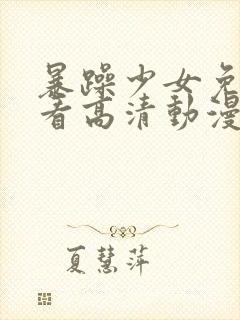 暴躁少女免
看高清動漫
夏慧萍